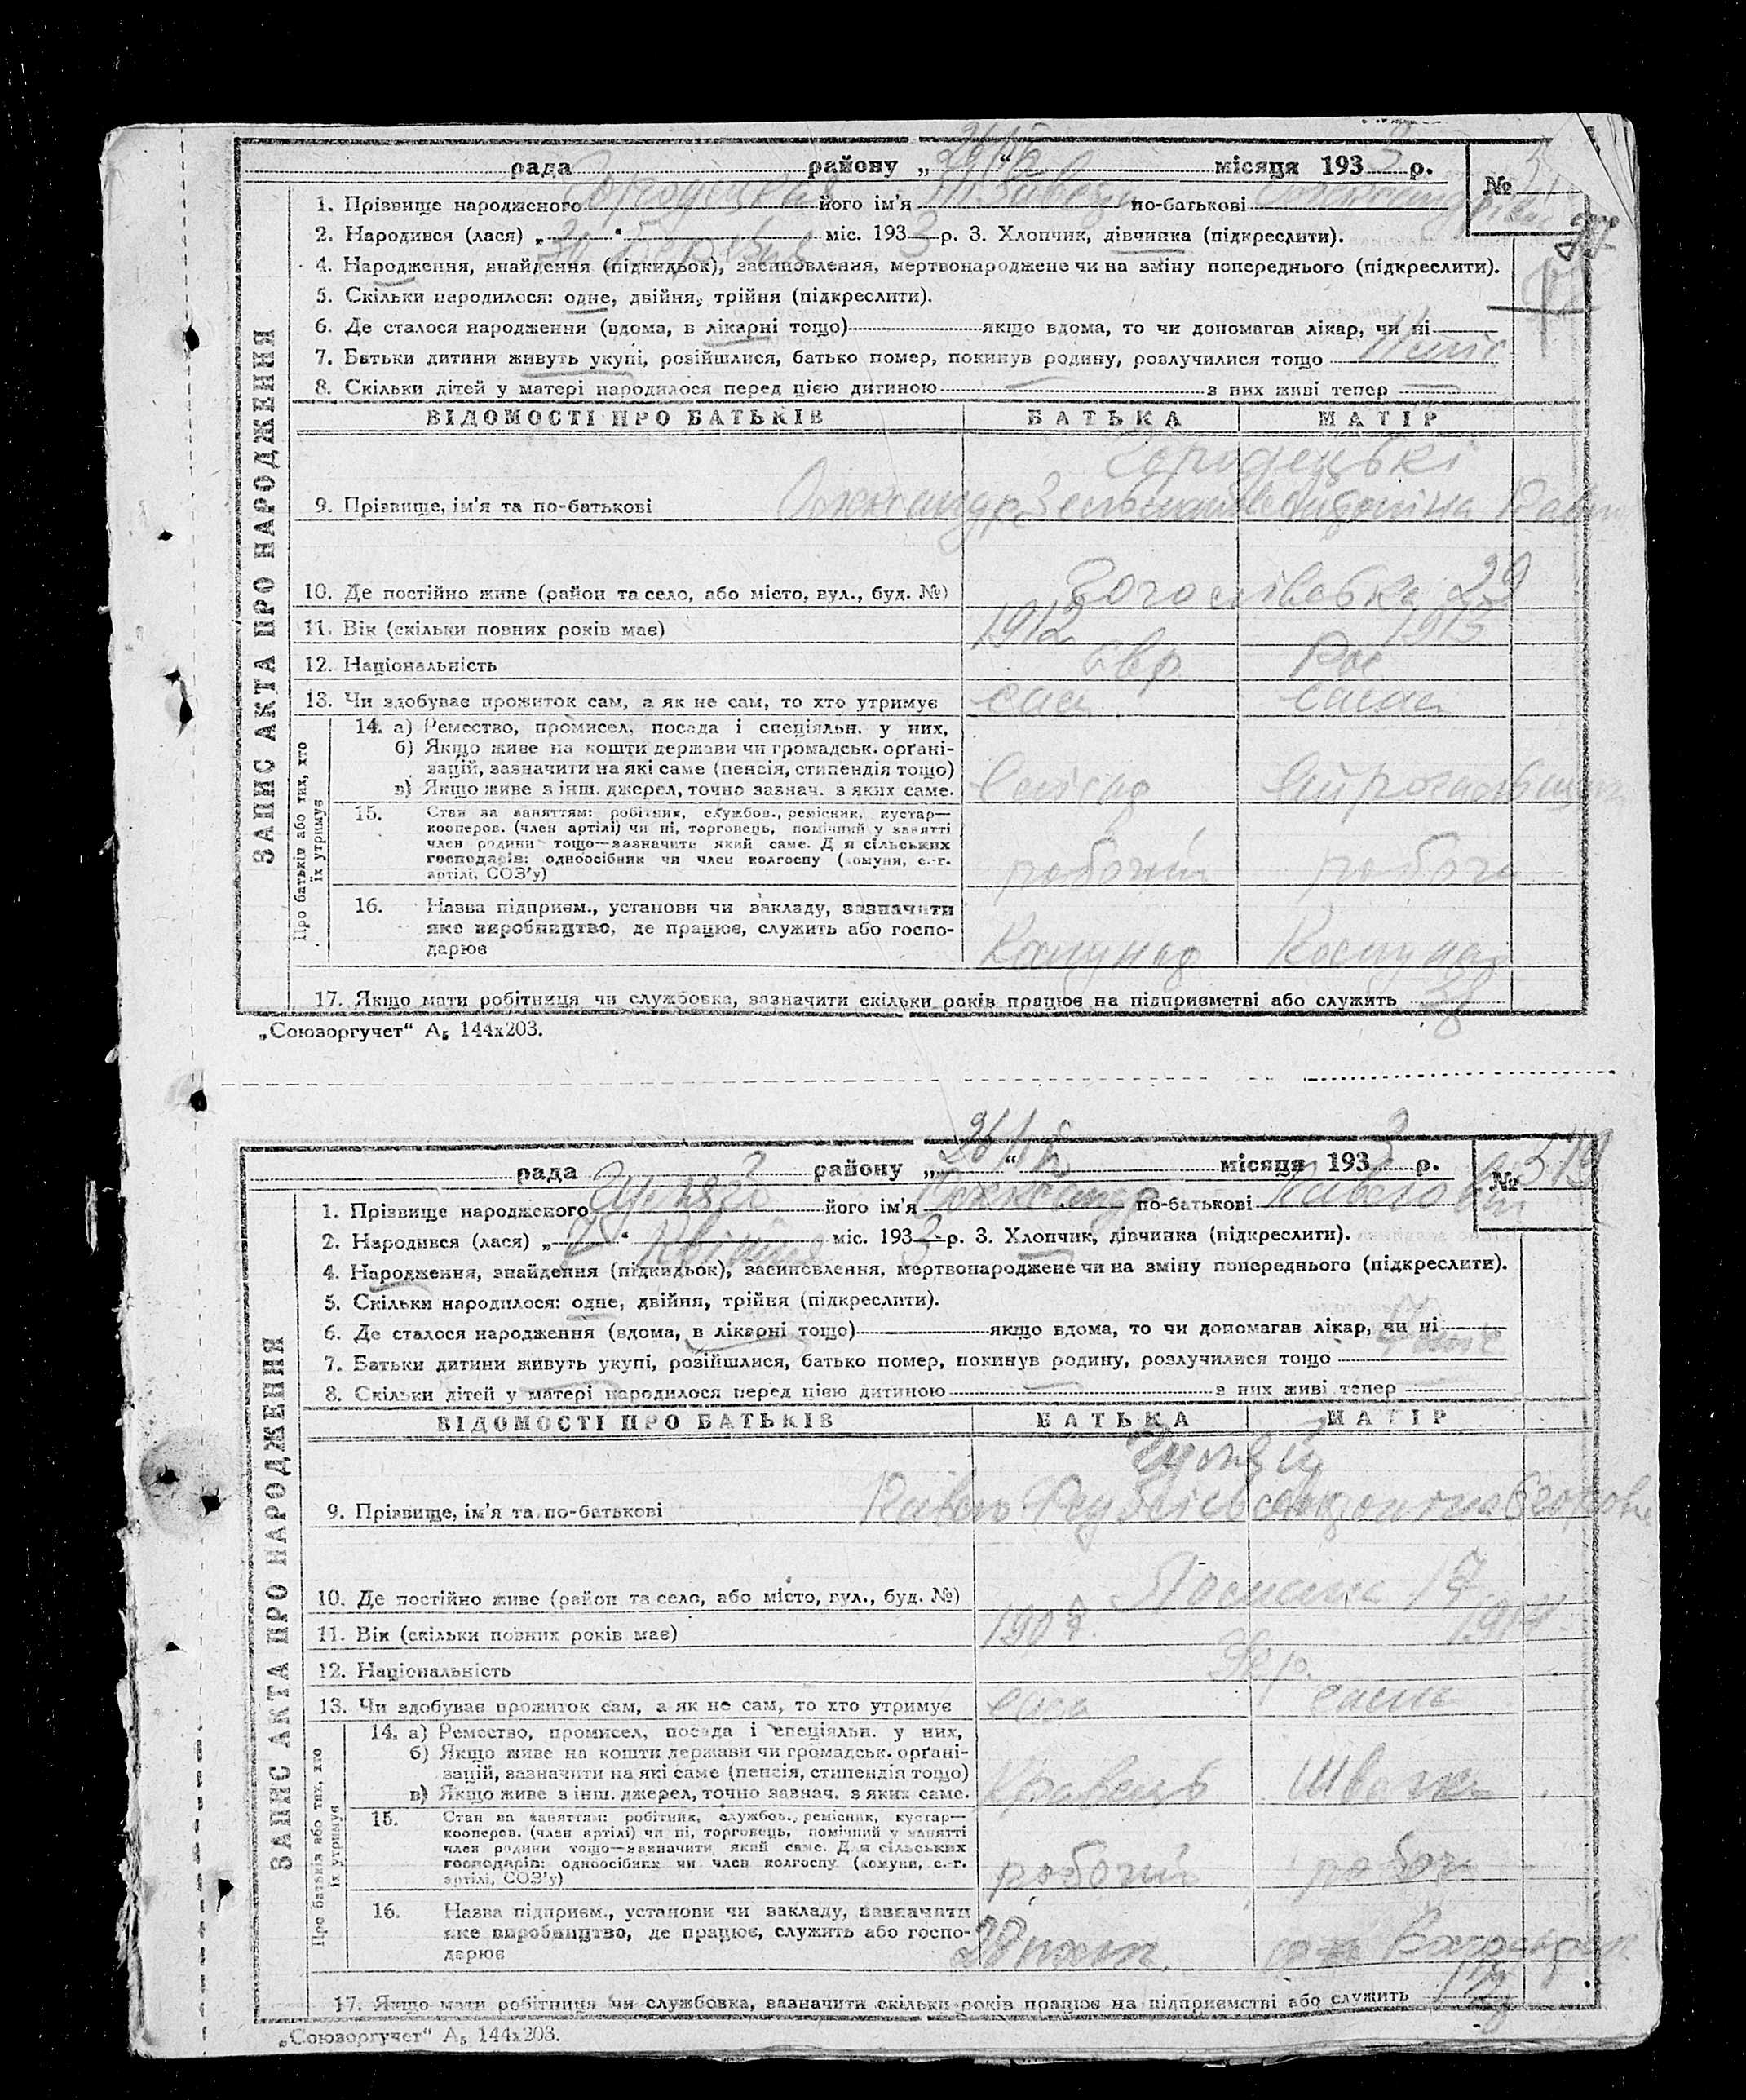 рада району „26/IV“ місяця 1933 р. №
1. Прізвище народженого Городецька його ім'я по-батькові
2. Народився (лася) „30“ Березня міс. 1933 р. 3. Хлопчик, дівчинка (підкреслити).
4. Народження, знайдення (підкидьок), засиновлення, мертвонароджене чи на зміну попереднього (підкреслити).
5. Скільки народилося: одне, двійня, трійня (підкреслити).
6. Де сталося народження (вдома, в лікарні тощо) якщо вдома, то чи допомагав лікар, чи ні
7. Батьки дитини живуть укупі, розійшлися, батько помер, покинув родину, розлучилися тощо
8. Скільки дітей у матері народилося перед цією дитиною — з них живі тепер —
ЗАПИС АКТА ПРО НАРОДЖЕННЯ
ВІДОМОСТІ ПРО БАТЬКІВ БАТЬКА МАТІР
Городецькі
9. Прізвище, ім'я та по-батькові Олександр
10. Де постійно живе (район та село, або місто, вул., буд. №) 29
11. Вік (скільки повних років має) 1912 1913
12. Національність євр. Рос
13. Чи здобуває прожиток сам, а як не сам, то хто утримує сам сама
Про батьків або тих, хто їх утримує
14. а) Ремество, промисел, посада і спеціяльн. у них,
б) Якщо живе на кошти держави чи громадськ. орґані-
зацій, зазначити на які саме (пенсія, стипендія тощо)
в) Якщо живе з інш. джерел, точно зазнач. з яких саме.
15. Стан за заняттям: робітник, службов., ремісник, кустар—
кооперов. (член артілі) чи ні, торговець, помічний у занятті
член родини тощо—зазначить який саме. Для сільських
господарів: одноосібник чи член колгоспу (комуни, с.-г.
артілі, СОЗ'у) робочий робоча
16. Назва підприєм., установи чи закладу, зазначити
яке виробництво, де працює, служить або госпо-
дарює Комунар Комунар
17. Якщо мати робітниця чи службовка, зазначити скільки років працює на підприємстві або служить
„Союзоргучет“ А₅ 144х203.
рада району „26/IV“ місяця 1933 р. № 519
1. Прізвище народженого його ім'я Олександр по-батькові Павлович
2. Народився (лася) „7“ Квітня міс. 1933 р. 3. Хлопчик, дівчинка (підкреслити).
4. Народження, знайдення (підкидьок), засиновлення, мертвонароджене чи на зміну попереднього (підкреслити).
5. Скільки народилося: одне, двійня, трійня (підкреслити).
6. Де сталося народження (вдома, в лікарні тощо) якщо вдома, то чи допомагав лікар, чи ні
7. Батьки дитини живуть укупі, розійшлися, батько помер, покинув родину, розлучилися тощо
8. Скільки дітей у матері народилося перед цією дитиною — з них живі тепер
ЗАПИС АКТА ПРО НАРОДЖЕННЯ
ВІДОМОСТІ ПРО БАТЬКІВ БАТЬКА МАТІР
9. Прізвище, ім'я та по-батькові Павло
10. Де постійно живе (район та село, або місто, вул., буд. №) 17
11. Вік (скільки повних років має) 1907 1914
12. Національність Укр.
13. Чи здобуває прожиток сам, а як не сам, то хто утримує сам сама
Про батьків або тих, хто їх утримує
14. а) Ремество, промисел, посада і спеціяльн. у них,
б) Якщо живе на кошти держави чи громадськ. орґані-
зацій, зазначити на які саме (пенсія, стипендія тощо)
в) Якщо живе з інш. джерел, точно зазнач. з яких саме. Кравець Швачка
15. Стан за заняттям: робітник, службов., ремісник, кустар—
кооперов. (член артілі) чи ні, торговець, помічний у занятті
член родини тощо—зазначити який саме. Для сільських
господарів: одноосібник чи член колгоспу (комуни, с.-г.
артілі, СОЗ'у) робочий робоча
16. Назва підприєм., установи чи закладу, зазначити
яке виробництво, де працює, служить або госпо-
дарює
17. Якщо мати робітниця чи службовка, зазначити скільки років працює на підприємстві або служить
„Союзоргучет“ А₅ 144х203.